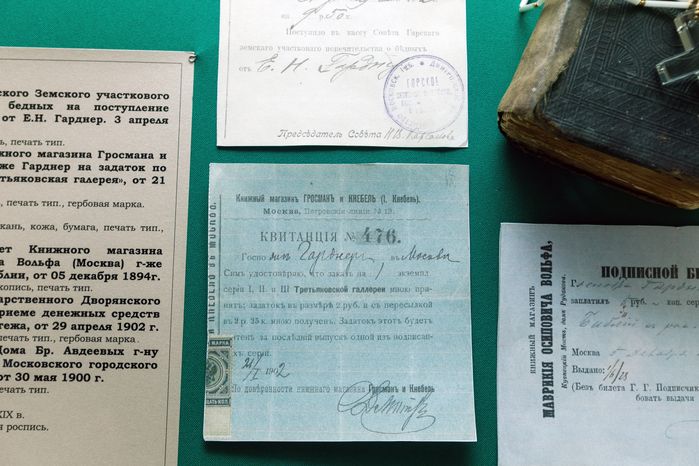 ского Земского участкового
бедных на поступление
от Е.Н. Гарднер. 3 апреля
печать тип.
жного магазина Гросмана и
же Гарднер на задаток по
тьяковская галерея", от 21
печать тип., гербовая марка.
кань, кожа, бумага, печать тип.,
ет Книжного магазина
а Вольфа (Москва) г-же
блии, от 05 декабря 1894г.
копись, печать тип.
дарственного Дворянского
приеме денежных средств
тежа, от 29 апреля 1902 г.
печать тип., гербовая марка.
Дома Бр. Авдеевых г-ну
Московского городского
от 30 мая 1900 г.
печать тип.
XIX в.
роспись.
на р. 50 г.
Поступило въ кассу Совѣта Горскаго
земскаго участковаго попечительства о бѣдныхъ
отъ Е. Н. Гарднер
ГОРСКОЕ
Предсѣдатель Совѣта
Книжный магазинъ ГРОСМАНЪ и КНЕБЕЛЬ (I. Кнебель).
Москва, Петровскія линіи № 13.
КВИТАНЦІЯ № 476.
Госпо жи Гарднеръ въ Москвѣ
Симъ удостовѣряю, что заказъ на 1 экземпл
серіи I, II и III Третьяковской галлереи мною при-
нятъ; задатокъ въ размѣрѣ 2 руб. и съ пересылкой
въ 2 р. 25 к. мною полученъ. Задатокъ этотъ будетъ
зачтенъ за послѣдній выпускъ одной изъ подписан-
ныхъ серій.
МАРКА
21/I 1902
По довѣренности книжнаго магазина Гросманъ и Кнебель
КНИЖНЫЙ МАГАЗИНЪ
МАВРИКІЯ ОСИПОВИЧА ВОЛЬФА,
Кузнецкій Мостъ, домъ Рудакова.
ПОДПИСНОЙ БИ
Г
заплатилъ руб. коп. сере
Москва
Выдано:
(Безъ билета Г. Г. Подписчик
бовать выдачи